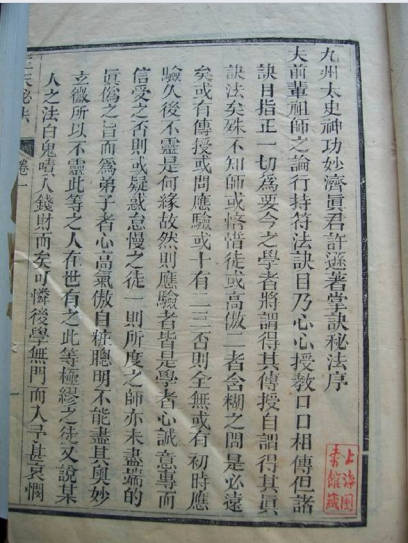 九州太史神功妙濟眞君許遜著堂訣秘法序
夫前輩祖師之論行持符法訣目乃心心授教口口相傳但諸
訣目指正一切爲要今之學者將謂得其傳授自謂得其眞
訣法矣殊不知師或悋惜徒或高傲二者含糊之間是必遠
矣或有傳授或問應驗或十有二三否則全無或有初時應
驗久後不靈是何緣故然則應驗者皆是學者心誠意專而
信受之否則或疑惑怠慢之徒一則所度之師亦未盡端的
眞僞之旨而爲弟子者心高氣傲自秏聰明不能盡其奥妙
玄微所以不靈此等之人在世有之此等極謬之徒又說某
人之法白鬼嘖人錢財而矣可憐後學無門而入予甚哀憫
卷一
上海图
書館藏